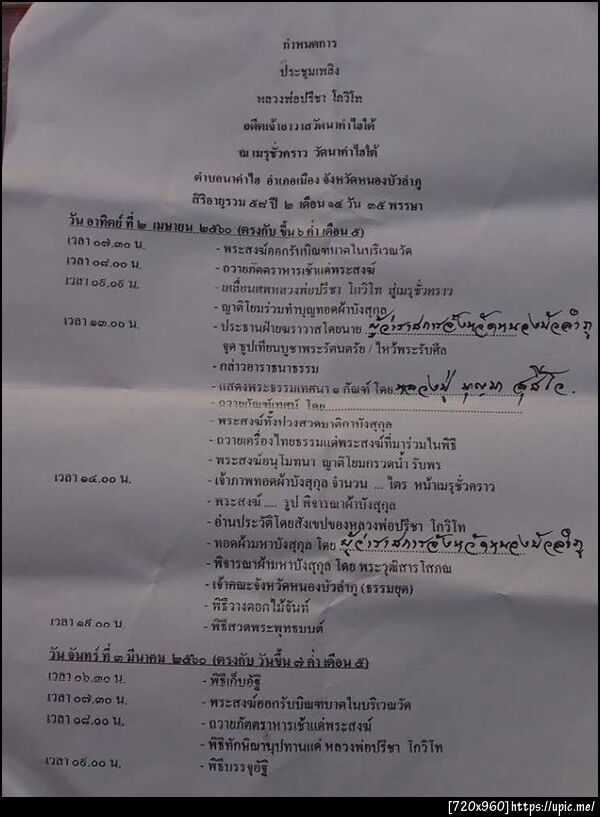 กำหนดการ
ประชุมเพลิง
หลวงพ่อปรีชา โกวิโท
อดีตเจ้าอาวาสวัดนาคำไฮใต้
ณ เมรุชั่วคราว วัดนาคำไฮใต้
ตำบลนาคำไฮ อำเภอเมือง จังหวัดหนองบัวลำภู
สิริอายุรวม ๕๘ ปี ๒ เดือน ๑๔ วัน ๓๕ พรรษา
วัน อาทิตย์ ที่ ๒ เมษายน ๒๕๖๐ (ตรงกับ ขึ้น ๖ ค่ำ เดือน ๕)
เวลา ๐๗.๓๐ น. - พระสงฆ์ออกรับบิณฑบาตในบริเวณวัด
เวลา ๐๘.๐๐ น. - ถวายภัตตราหารเช้าแด่พระสงฆ์
เวลา ๐๙.๐๙ น. - เคลื่อนศพหลวงพ่อปรีชา โกวิโท สู่เมรุชั่วคราว
- ญาติโยมร่วมทำบุญทอดผ้าบังสุกุล
เวลา ๑๓.๐๐ น. - ประธานฝ่ายฆราวาสโดยนาย ผู้ว่าราชการจังหวัดหนองบัวลำภู
จุด ธูปเทียนบูชาพระรัตนตรัย / ไหว้พระรับศีล
- กล่าวอาราธนาธรรม
- แสดงพระธรรมเทศนา ๑ กัณฑ์ โดย หลวงปู่ บุญมา สุชีโว.
- ถวายกัณฑ์เทศน์ โดย
- พระสงฆ์ทั้งปวงสวดมาติกาบังสุกุล
- ถวายเครื่องไทยธรรมแด่พระสงฆ์ที่มาร่วมในพิธี
- พระสงฆ์อนุโมทนา ญาติโยมกรวดน้ำ รับพร
เวลา ๑๔.๐๐ น. - เจ้าภาพทอดผ้าบังสุกุล จำนวน ... ไตร หน้าเมรุชั่วคราว
- พระสงฆ์ .... รูป พิจารณาผ้าบังสุกุล
- อ่านประวัติโดยสังเขปของหลวงพ่อปรีชา โกวิโท
- ทอดผ้ามหาบังสุกุล โดย ผู้ว่าราชการจังหวัดหนองบัวลำภู
- พิจารณาผ้ามหาบังสุกุล โดย พระวุฒิสารโสภณ
- เจ้าคณะจังหวัดหนองบัวลำภู (ธรรมยุต)
- พิธีวางดอกไม้จันท์
เวลา ๑๙.๐๐ น. - พิธีสวดพระพุทธมนต์
วัน จันทร์ ที่ ๓ มีนาคม ๒๕๖๐ (ตรงกับ วันขึ้น ๗ ค่ำ เดือน ๕)
เวลา ๐๖.๓๐ น. - พิธีเก็บอัฐิ
เวลา ๐๗.๓๐ น. - พระสงฆ์ออกรับบิณฑบาตในบริเวณวัด
เวลา ๐๘.๐๐ น. - ถวายภัตตราหารเช้าแด่พระสงฆ์
- พิธีทักษิณานุปทานแด่ หลวงพ่อปรีชา โกวิโท
เวลา ๐๙.๐๐ น. - พิธีบรรจุอัฐิ
[720x960]https://upic.me/